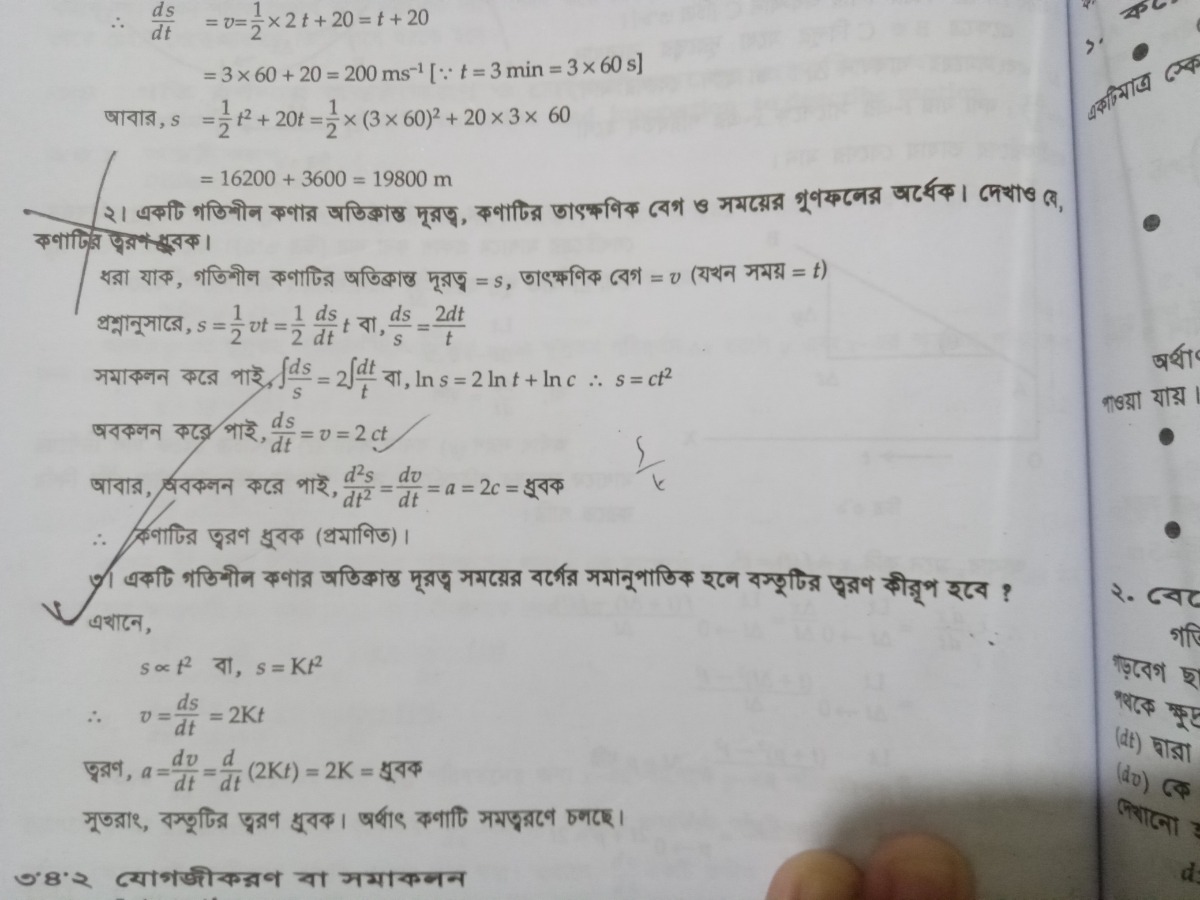 ∴ ds/dt = v = 1/2 × 2 t + 20 = t + 20
= 3 × 60 + 20 = 200 ms⁻¹ [∵ t = 3 min = 3 × 60 s]
আবার, s = 1/2 t² + 20t = 1/2 × (3 × 60)² + 20 × 3 × 60
= 16200 + 3600 = 19800 m
২। একটি গতিশীল কণার অতিক্রান্ত দূরত্ব, কণাটির তাৎক্ষণিক বেগ ও সময়ের গুণফলের অর্ধেক। দেখাও যে,
কণাটির ত্বরণ ধ্রুবক।
ধরা যাক, গতিশীল কণাটির অতিক্রান্ত দূরত্ব = s, তাৎক্ষণিক বেগ = v (যখন সময় = t)
প্রশ্নানুসারে, s = 1/2 vt = 1/2 ds/dt t বা, ds/s = 2dt/t
সমাকলন করে পাই, ∫ds/s = 2∫dt/t বা, ln s = 2 ln t + ln c ∴ s = ct²
অবকলন করে পাই, ds/dt = v = 2 ct
আবার, অবকলন করে পাই, d²s/dt² = dv/dt = a = 2c = ধ্রুবক
∴ কণাটির ত্বরণ ধ্রুবক (প্রমাণিত)।
৩। একটি গতিশীল কণার অতিক্রান্ত দূরত্ব সময়ের বর্গের সমানুপাতিক হলে বস্তুটির ত্বরণ কীরূপ হবে ?
এখানে,
s ∝ t² বা, s = Kt²
∴ v = ds/dt = 2Kt
ত্বরণ, a = dv/dt = d/dt (2Kt) = 2K = ধ্রুবক
সুতরাং, বস্তুটির ত্বরণ ধ্রুবক। অর্থাৎ কণাটি সমত্বরণে চলছে।
৩.৪.২ যোগজীকরণ বা সমাকলন
একটিমাত্র
অর্থাৎ
পাওয়া যায়।
২.
(dt) দ্বারা
(dv) কে
দেখানো